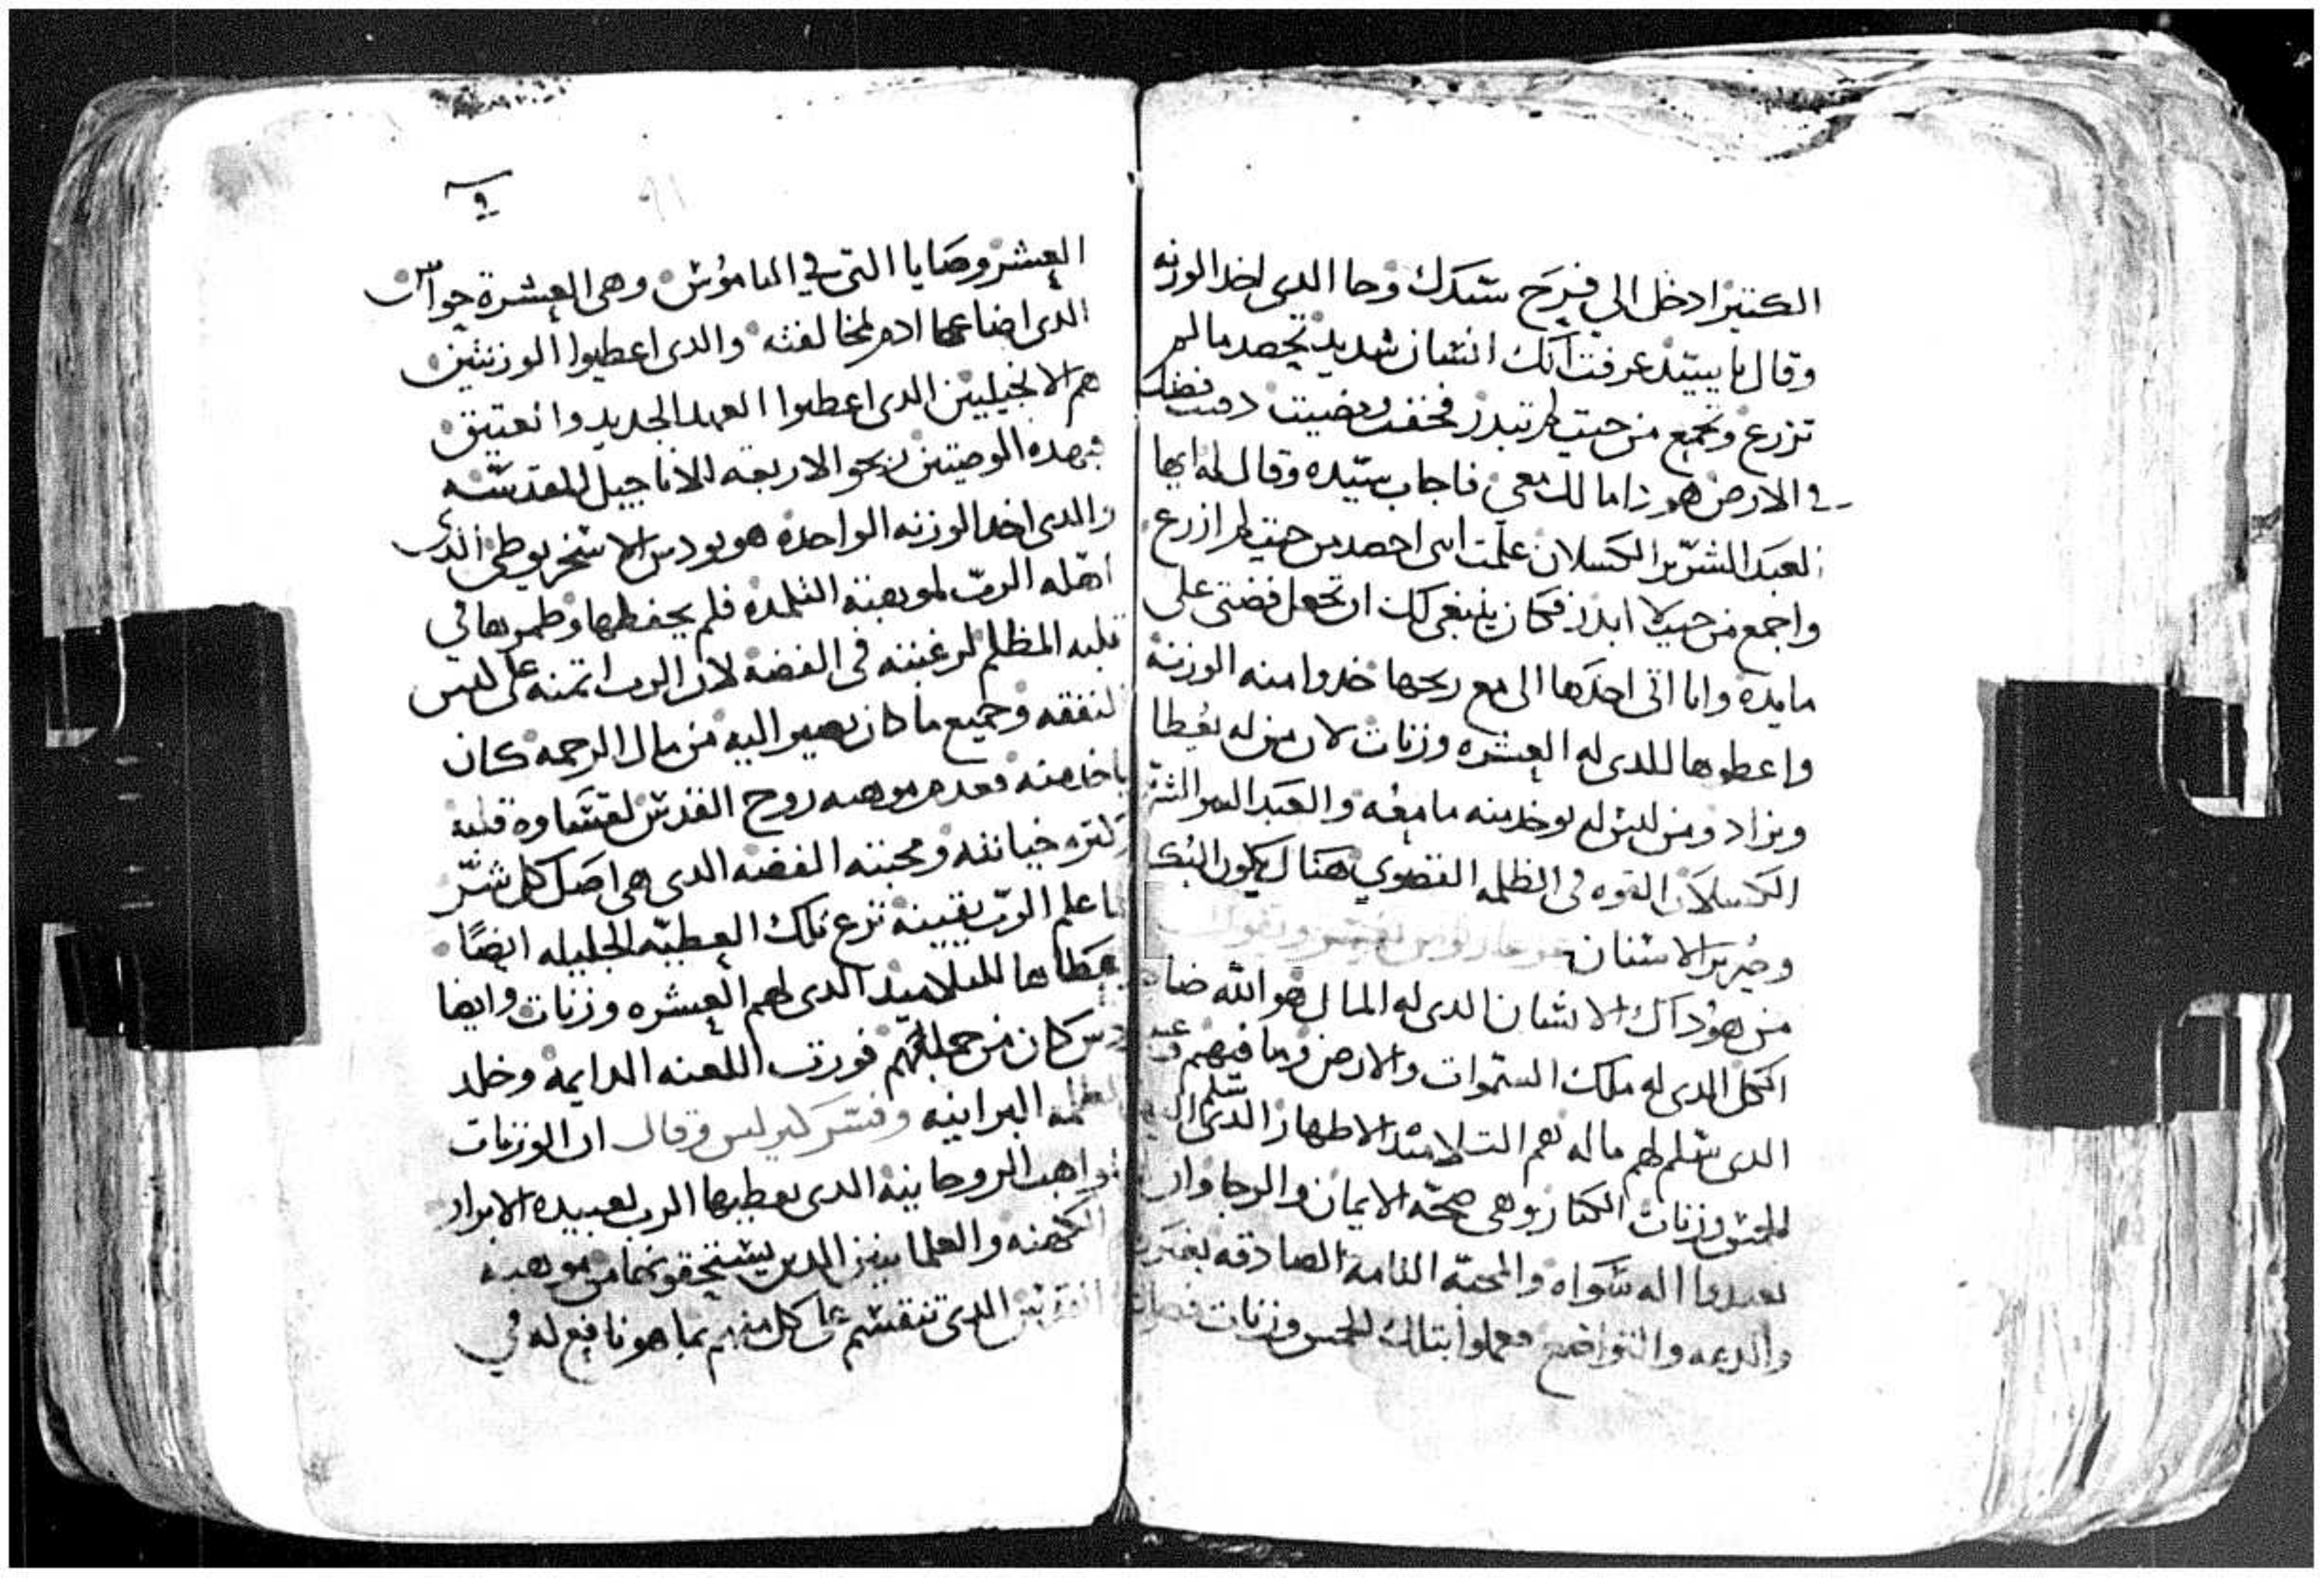 الكتير ادخل الي فرح سيدك وجا الدى اخد الوزنه
وقال يا سيد عرفت انك انسان شديد تحصد ما لم
تزرع وتجمع من حيت لم تبدر فخفت ومضيت دفنت فضتك
في الارض هودا مالك معي فاجاب سيده وقال له ايها
العبد الشرير الكسلان علمت انى احصد من حيت لم ازرع
واجمع من حيت لا ابدر فكان ينبغى لك ان تجعل فضتى على
مايده وانا اتى اخدها الى مع ربحها خدوا منه الوزنه
واعطوها للدى له العشره وزنات لان من له يعطا
ويزاد ومن ليس له يوخد منه ما معه والعبد الشر
الكسلان القوه فى الظلمه القصوي هناك يكون البكا
وصرير الاسنان
من هو داك الانسان الدى له المال هو الله ضابط
الكل الدى له ملك السموات والارض وما فيهم
الدى سلم لهم ماله هم التلاميد الاطهار الدى سلم
للخمس وزنات الكبار وهى صحة الايمان والرجا وان
يعبدوا اله سواه والمحبه التامه الصادقه بغير
والدعه والتواضع فعملوا بتلك الخمس وزنات
٩
العشر وصايا التى في الناموس وهى العشرة حواس
الدى اضاعها ادم لمخالفته والدى اعطيوا الوزنتين
هم الانجيليين الدى اعطوا العهد الجديد والعتيق
فبهده الوصيتين ربحوا الاربعه الاناجيل المقدسه
والدى اخد الوزنه الواحده هو يودس الاسخريوطى الدى
اهله الرب لموهبة التلمده فلم يحفظها وطمرها في
قلبه المظلم لرغبته فى الفضه لان الرب اتمنه على كيس
النفقه وجميع ما كان يصير اليه من مال الرحمه كان
ياخد منه فعدم موهبه روح القدس لقساوة قلبه
وكتره خيانته ومحبته الفضه الدى هى اصل كل شر
لما علم الرب بقيينه نزع تلك العطيه الجليله ايضا
اعطاها للتلاميد الدى لهم العشره وزنات وايضا
يودس كان من جملتهم فورت اللعنه الدايمه وخلد
الظلمه البرانيه وفسر كيرلس وقال ان الوزنات
المواهب الروحانيه الدى يعطيها الرب لعبيده الابرار
الكهنه والعلمانيين الدين يستحقونها من موهبه
القدس الدى تنقسم على كل منهم بما هو نافع له في